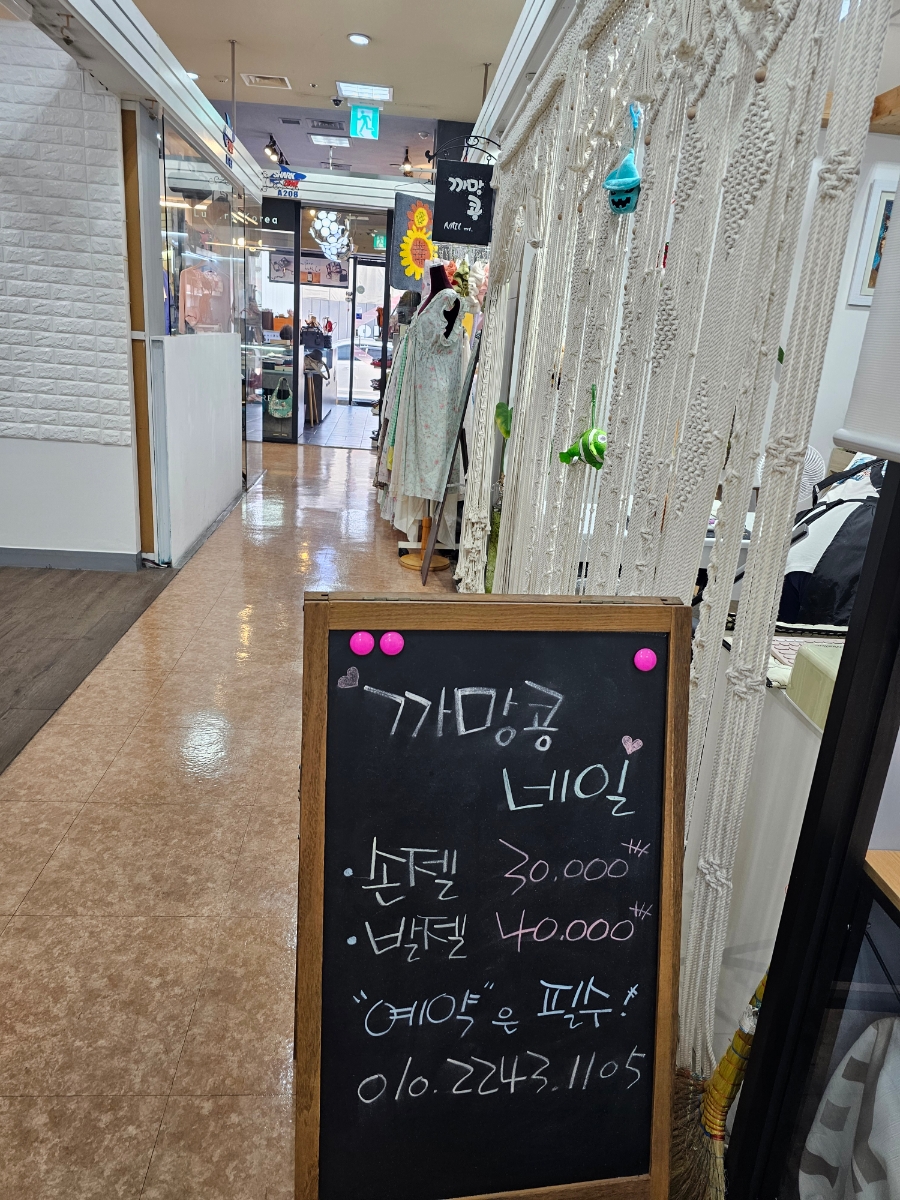 A208
까망콩
까망콩
네일
• 손젤 30.000₩
• 발젤 40.000₩
"예약"은 필수!
010.2243.1105